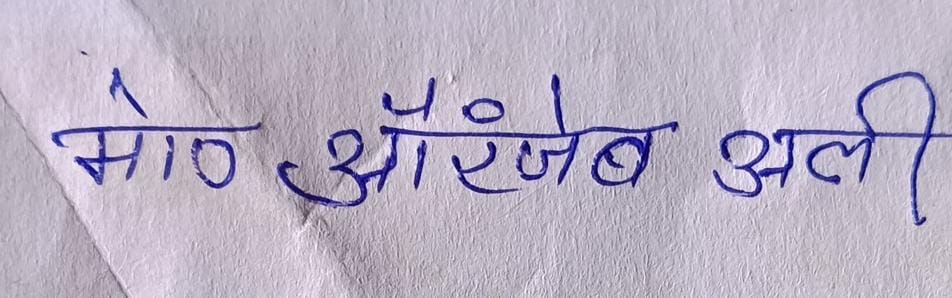 मो० औरंजेब अली